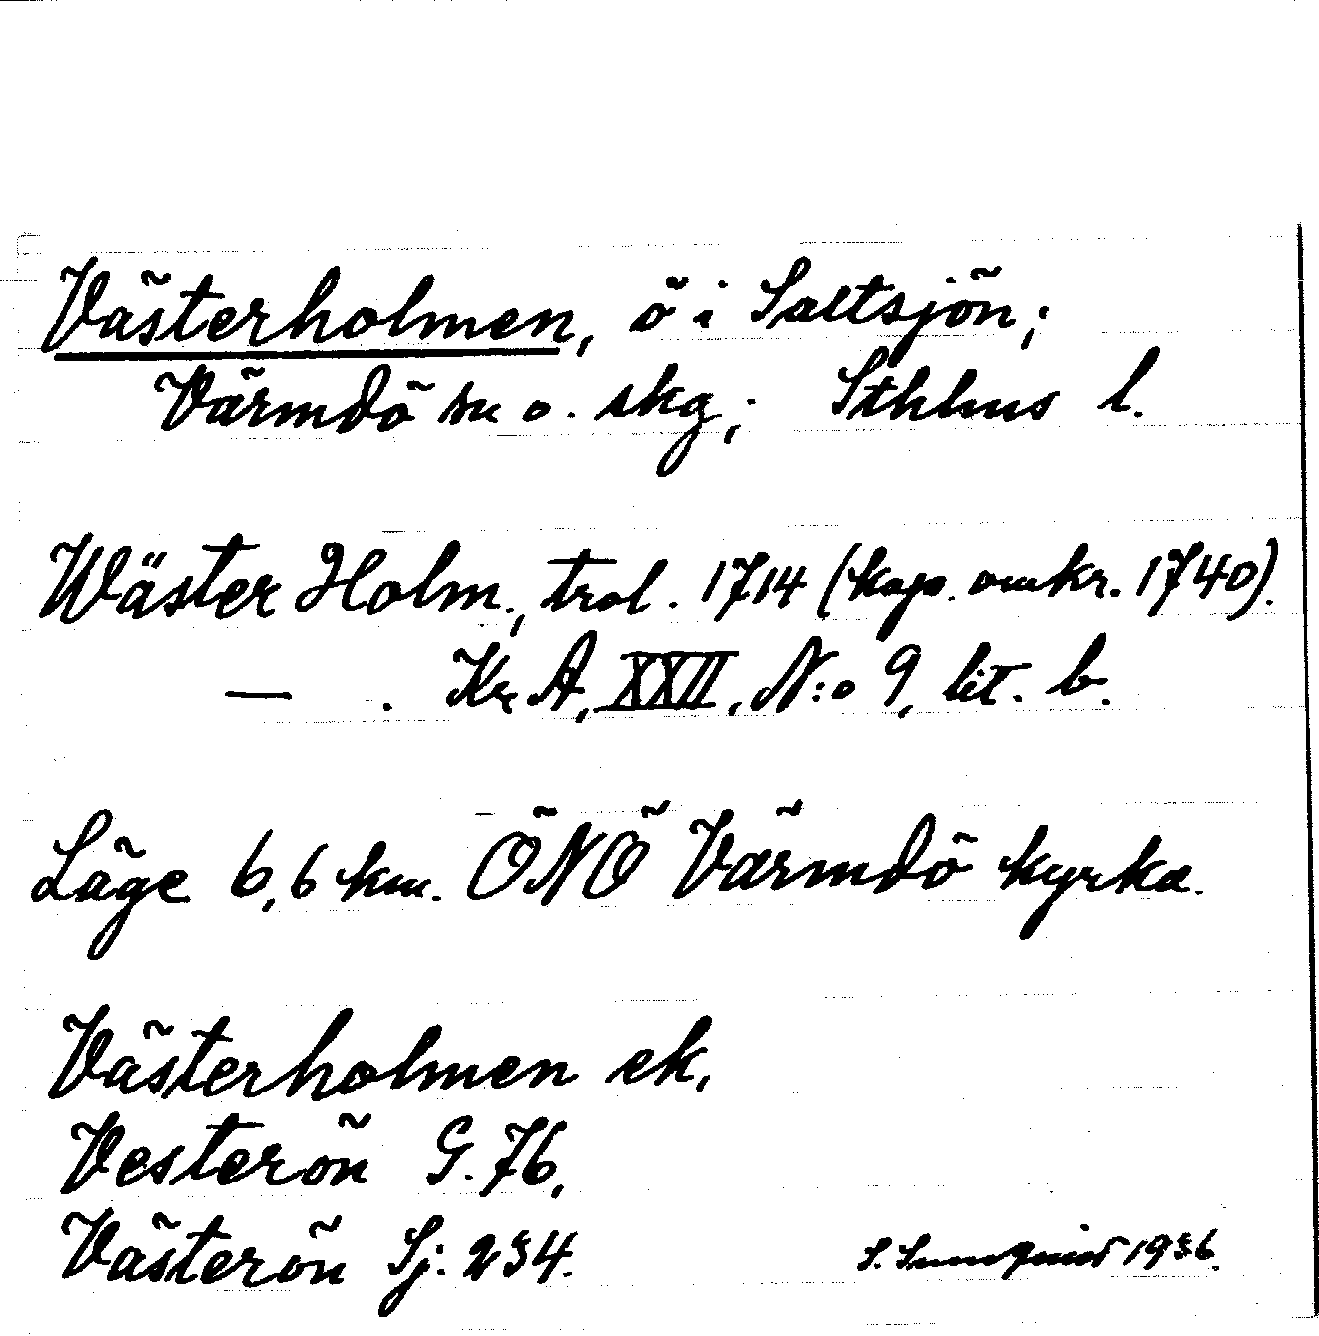 Västerholmen, ö i Saltsjön;
Värmdö sn o. skg; Sthlms l.
Wäster Holm, trol. 1714 (kop. omkr. 1740).
— . Kr. A, XXII, N:o 9, lit. b.
Läge 6,6 km. ÖNÖ Värmdö kyrka.
Västerholmen ek,
Vesterön G. 76,
Västerön Sj: 234.
S. Sundquist 1936.